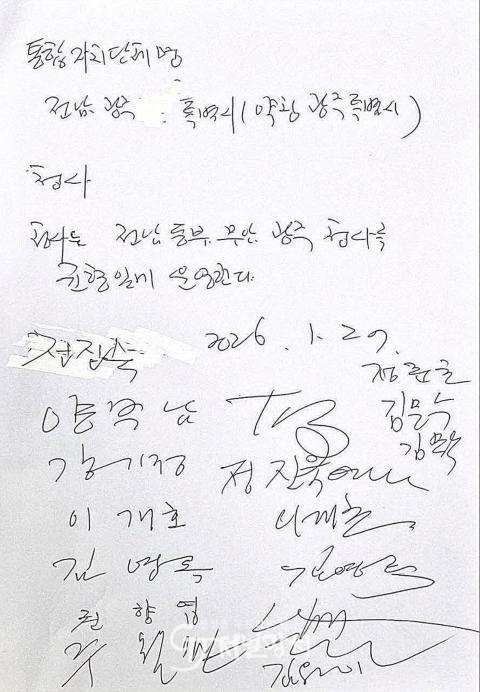 통합 자치단체 명
전남 광주 특별시 (약칭 광주특별시)
청사
청사는 전남 동부, 무안, 광주 청사를
균형있게 운영한다.
2026. 1. 27.
정준호
양부남
김문수
강기정 정진욱
이개호 이개호
김영록 김영록
권향엽